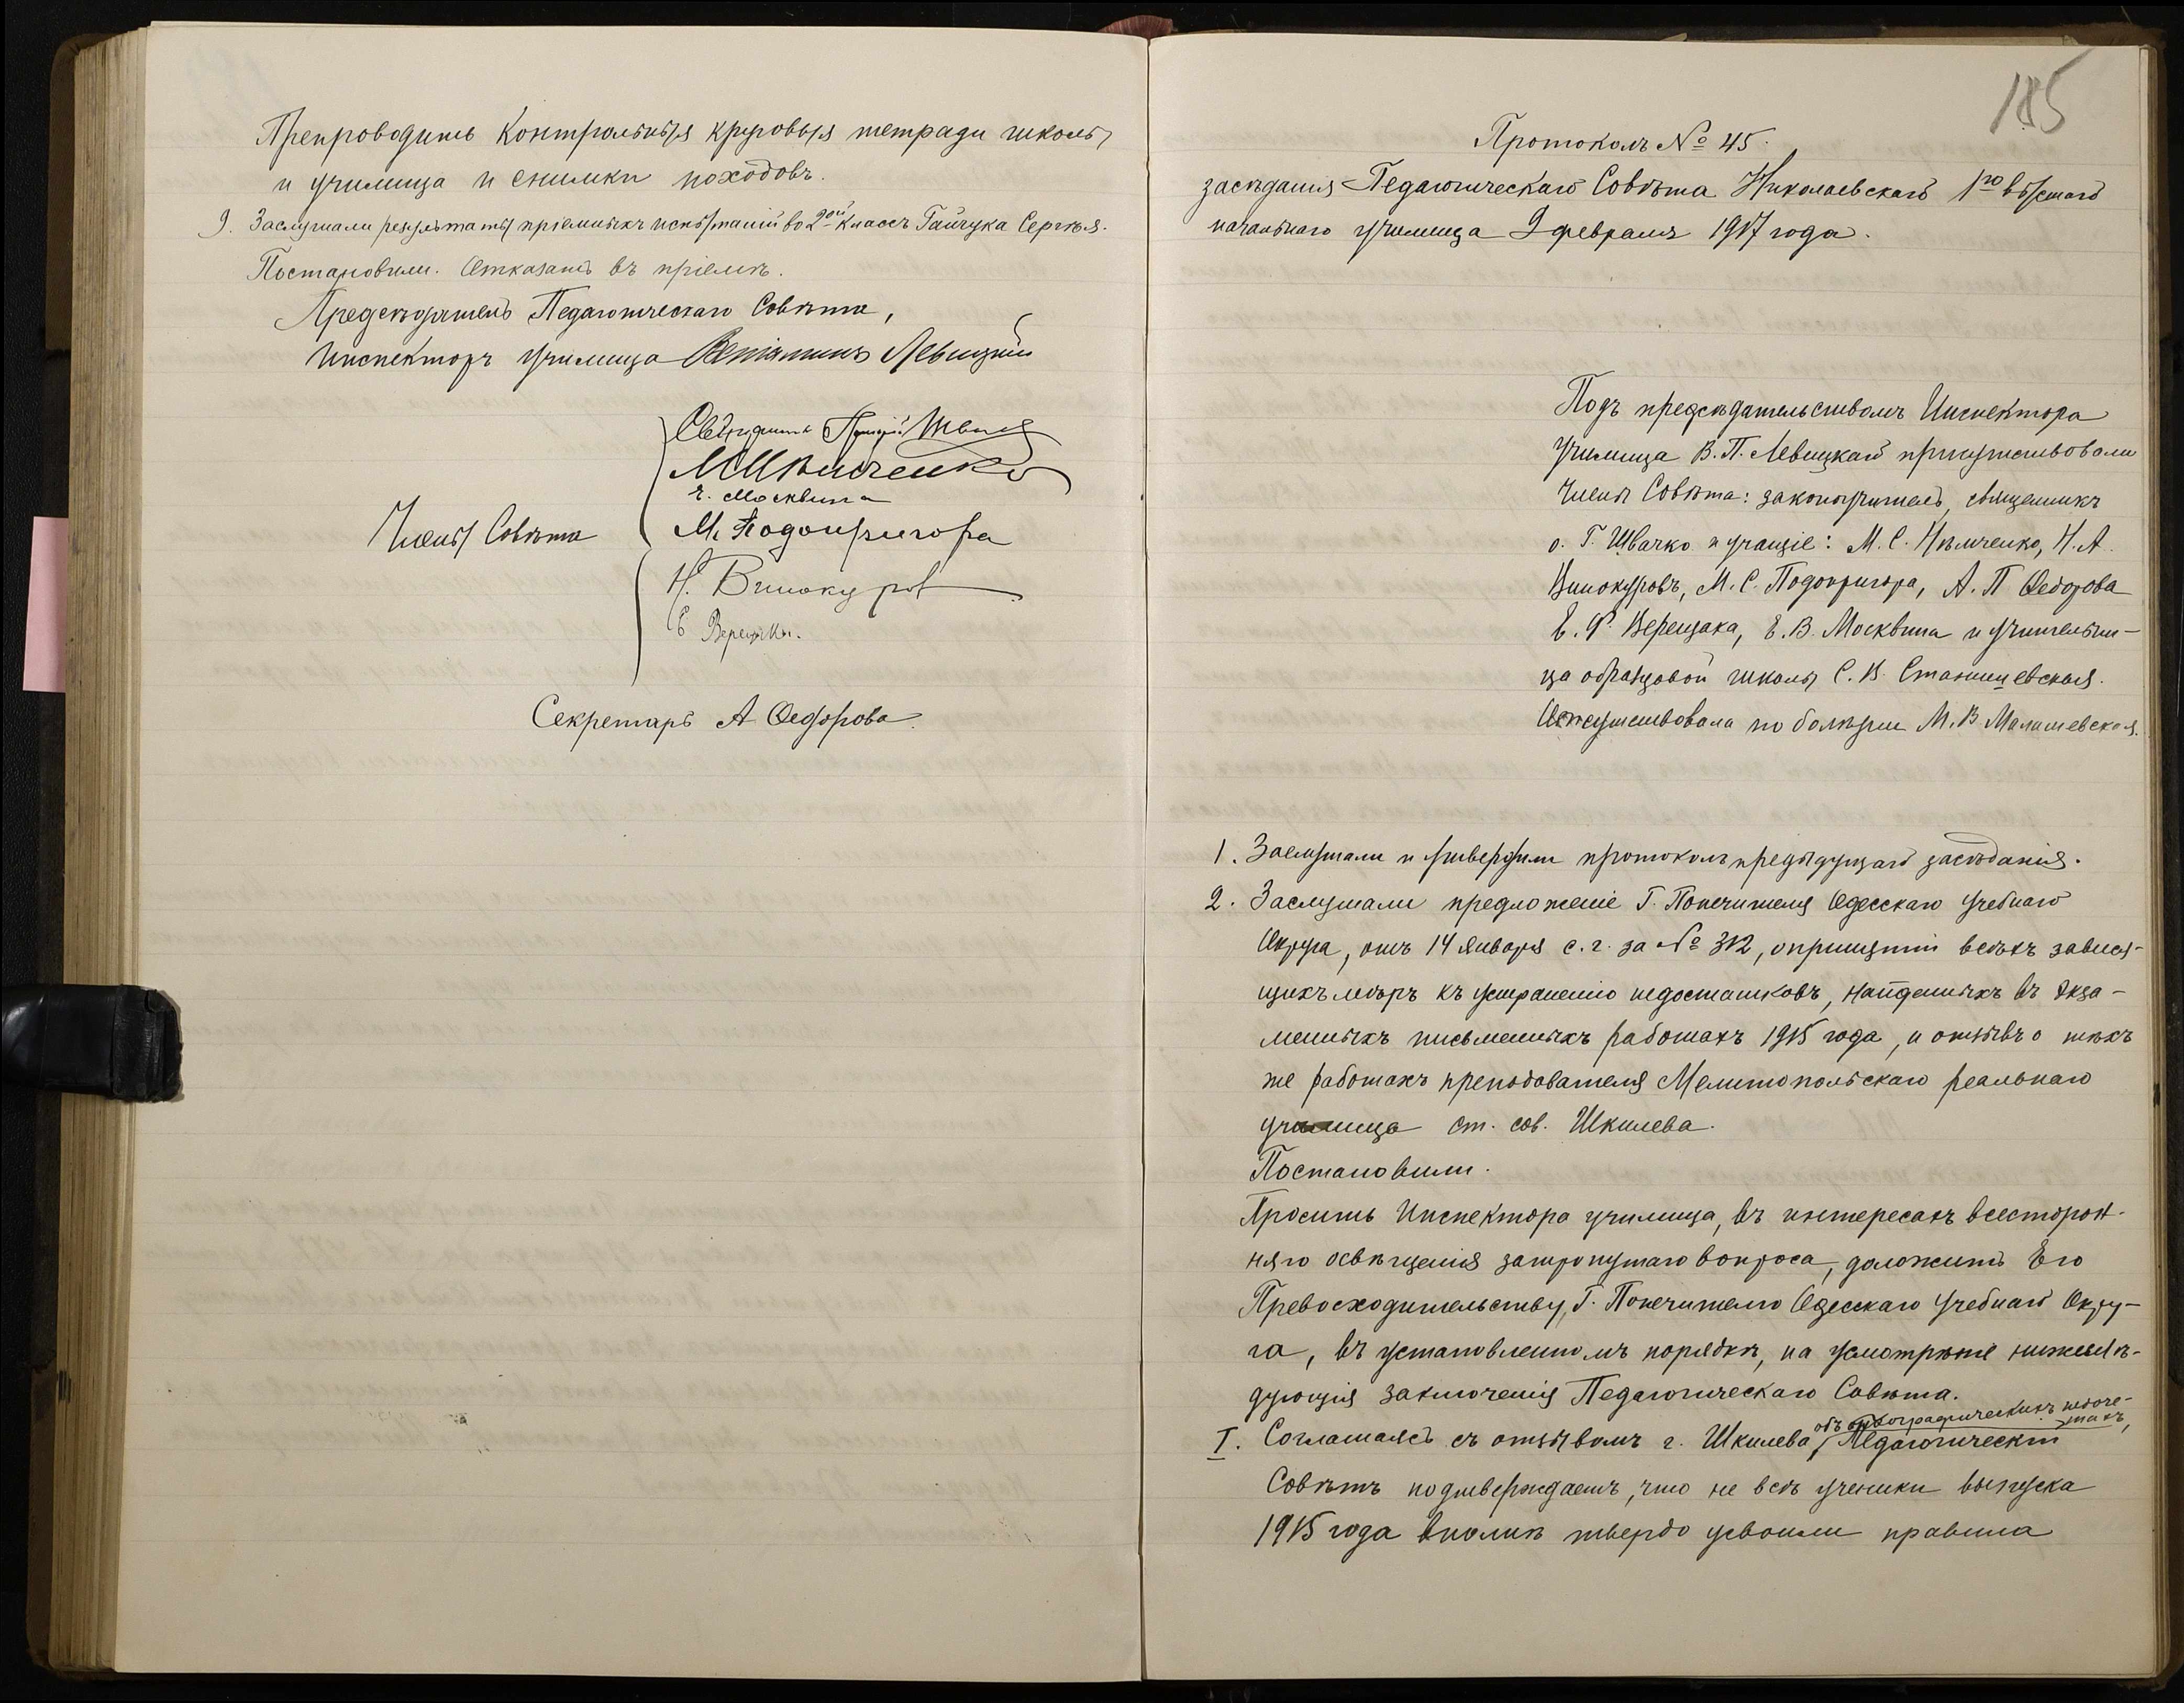 Препроводить контрольныя круговыя тетради школы
и училища и снимки походовъ.
9. Заслушали результаты пріемныхъ испытаній во 2ой классъ Гайчука Сергѣя.
Постановили. Отказать въ пріемѣ.
Предсѣдатель Педагогическаго Совѣта,
Инспекторъ училища Веніаминъ Левицкій
Священникъ Григорій Швачко
М. Нѣмченко
Е. Москвина
Члены Совѣта
М. Подопригора
Н. Винокуров
Е Верещака.
Секретарь А Ѳедорова
185
Протоколъ № 45.
засѣданія Педагогическаго Совѣта Николаевскаго 1го высшаго
начальнаго училища 9 февраля 1917 года.
Подъ предсѣдательствомъ Инспектора
училища В. П. Левицкаго присутствовали
члены Совѣта: законоучитель, священникъ
о. Г. Швачко и учащіе: М. С. Нѣмченко, Н. А.
Винокуровъ, М. С. Подопригора, А. П Ѳедорова
Е. Ф. Верещака, Е. В. Москвина и учительни-
ца образцовой школы С. В. Станишевская.
Отсутствовала по болѣзни М. В Малашевская.
1. Заслушали и утвердили протоколъ предыдущаго засѣданія.
2. Заслушали предложеніе Г. Попечителя Одесскаго Учебнаго
Округа, отъ 14 января с. г. за № 312, о принятіи всѣхъ завися-
щихъ мѣръ къ устраненію недостатковъ, найденныхъ въ экза-
менныхъ письменныхъ работахъ 1915 года, и отзывъ о тѣхъ
же работахъ преподавателя Мелитопольскаго реальнаго
училища ст. сов. Шкилева.
Постановили.
Просить Инспектора училища, въ интересахъ всесторон-
няго освѣщенія затронутаго вопроса, доложить Его
Превосходительству, Г. Попечителю Одесскаго Учебнаго Окру-
га, въ установленномъ порядкѣ, на усмотрѣніе нижеслѣ-
дующія заключенія Педагогическаго Совѣта.
объ орѳографическихъ недоче-
тахъ,
I. Соглашаясь съ отзывомъ г. Шкилева Педагогическій
Совѣтъ подтверждаетъ, что не всѣ ученики выпуска
1915 года вполнѣ твердо усвоили правила